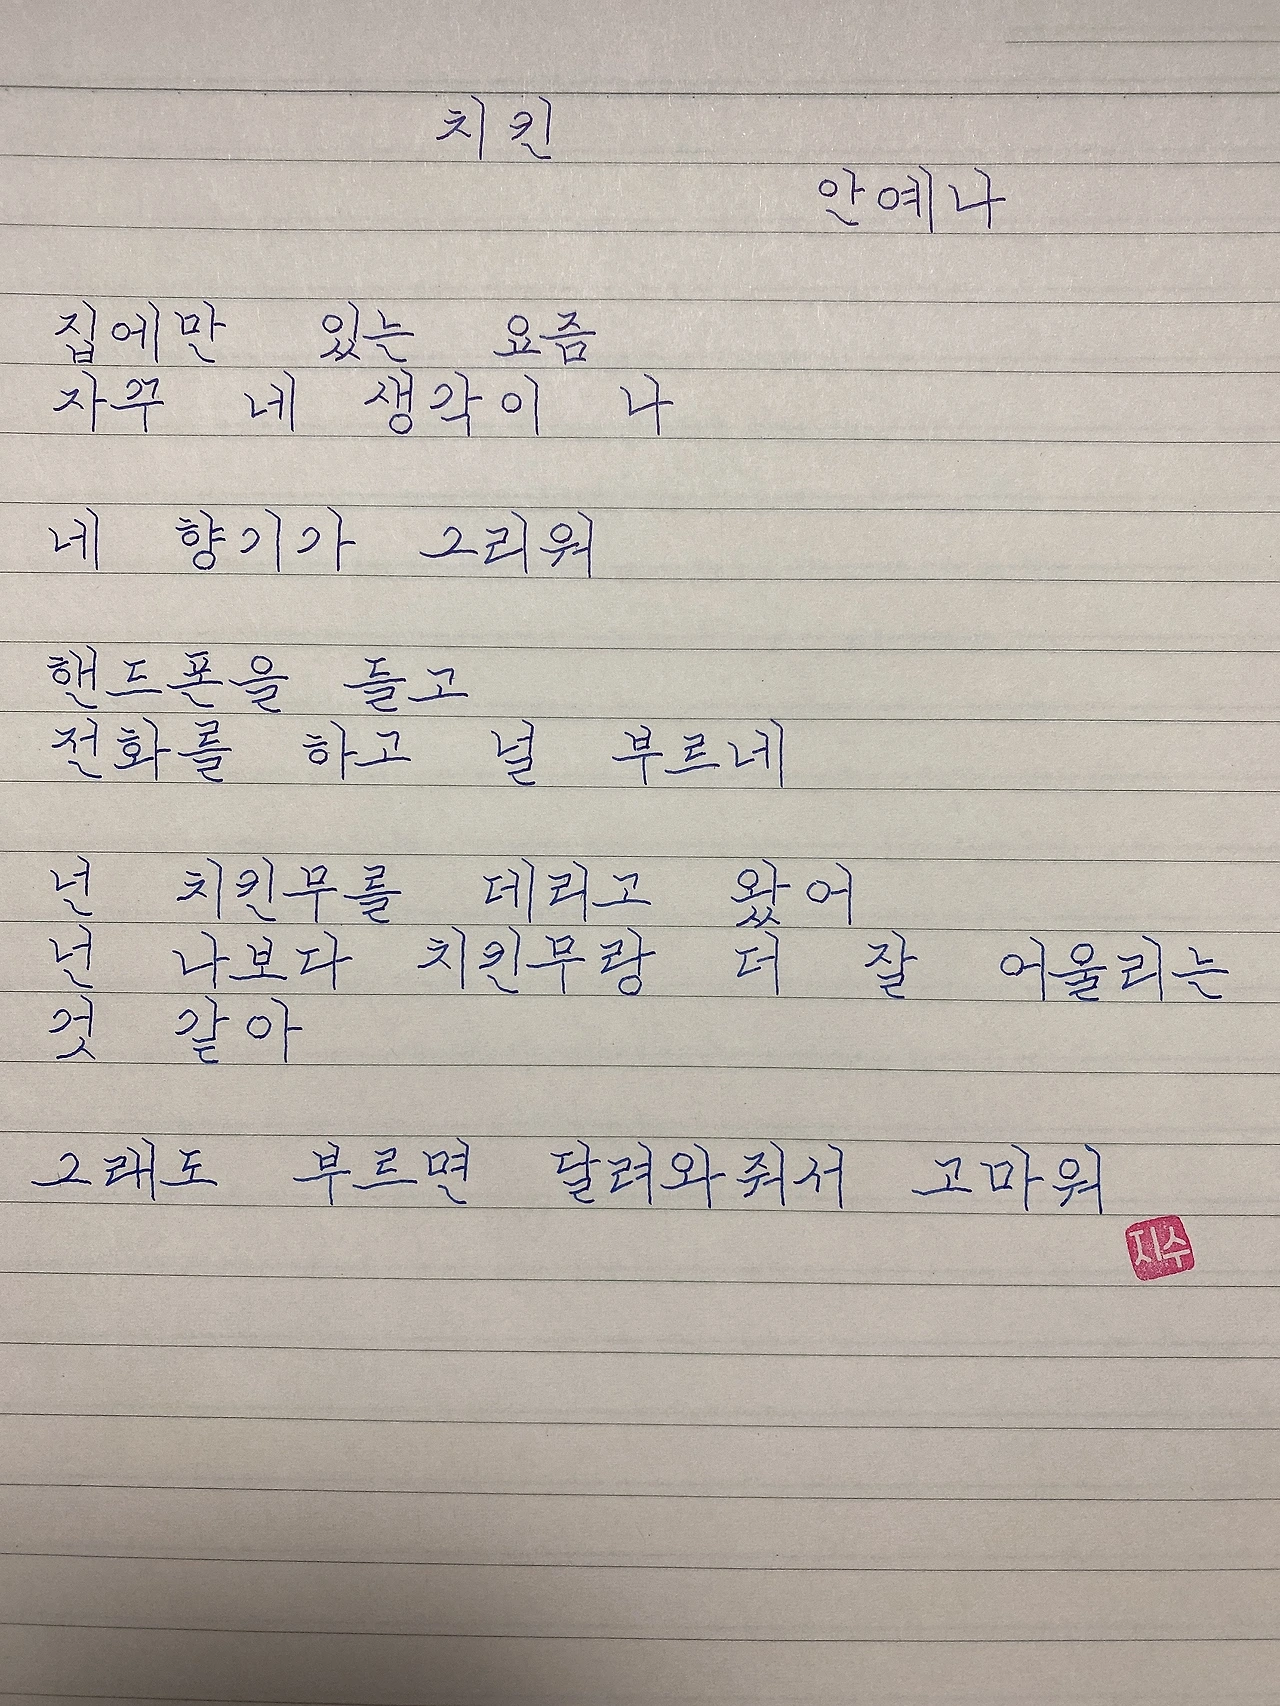 치킨
안예나
집에만 있는 요즘
자꾸 네 생각이 나
네 향기가 그리워
핸드폰을 들고
전화를 하고 널 부르네
넌 치킨무를 데리고 왔어
넌 나보다 치킨무랑 더 잘 어울리는
것 같아
그래도 부르면 달려와줘서 고마워
지수